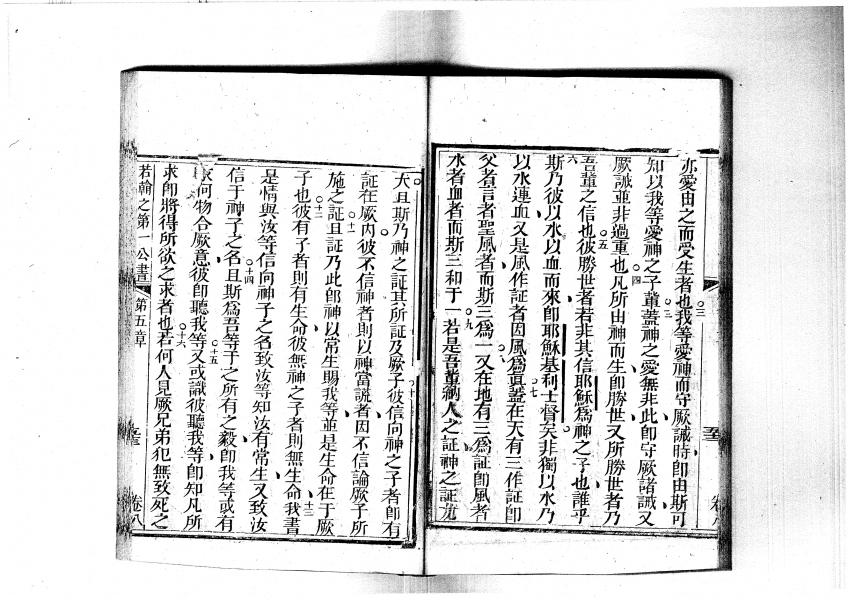 亦愛由之而受生者也我等愛神而守厥誡時即由斯可
知以我等愛神之子輩蓋神之愛無非此即守厥諸誡又
厥誡並非過重也凡所由神而生即勝世又所勝世者乃
吾輩之信也彼勝世者若非其信耶穌為神之子也誰乎
斯乃彼以水以血而來即耶穌基利士督矣非獨以水乃
以水連血又是風作証者因風為真蓋在天有三作証即
父者言者聖風者而斯三為一又在地有三為証即風者
水者血者而斯三和于一若是吾輩納人之証神之証尤
大且斯乃神之証其所証及厥子彼信向神之子者即有
証在厥內彼不信神者則以神當謊者因不信論厥子所
施之証且証乃此即神以常生賜我等並是生命在于厥
子也彼有子者則有生命彼無神之子者則無生命我書
是情與汝等信向神子之名致汝等知汝有常生又致汝
信于神子之名且斯為吾等于之所有之毅即我等或有
求何物合厥意彼即聽我等又或識彼聽我等即知凡所
求即將得所欲之求者也若何人見厥兄弟犯無致死之
若翰之第一公書 第五章 卷八